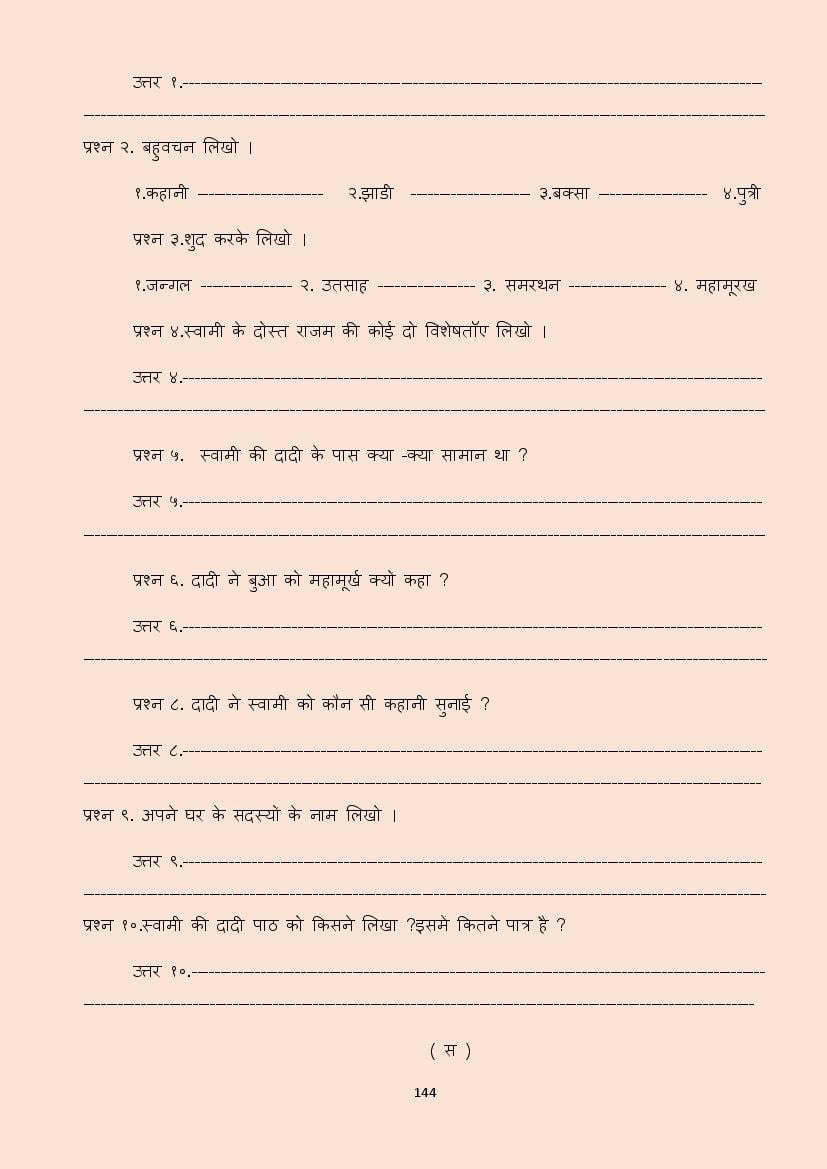 उत्तर १.----------------------------------------------------------------------------------------------------
----------------------------------------------------------------------------------------------------
प्रश्न २. बहुवचन लिखो ।
१.कहानी ---------------------- २.झाडी --------------------- ३.बक्सा ------------------- ४.पुत्री
प्रश्न ३.शुद करके लिखो ।
१.जन्गल ---------------- २. उतसाह ----------------- ३. समरथन ----------------- ४. महामूरख
प्रश्न ४.स्वामी के दोस्त राजम की कोई दो विशेषताॅए लिखो ।
उत्तर ४.----------------------------------------------------------------------------------------------------
----------------------------------------------------------------------------------------------------
प्रश्न ५. स्वामी की दादी के पास क्या -क्या सामान था ?
उत्तर ५.----------------------------------------------------------------------------------------------------
----------------------------------------------------------------------------------------------------
प्रश्न ६. दादी ने बुआ को महामूर्ख क्यों कहा ?
उत्तर ६.----------------------------------------------------------------------------------------------------
----------------------------------------------------------------------------------------------------
प्रश्न ८. दादी ने स्वामी को कौन सी कहानी सुनाई ?
उत्तर ८.----------------------------------------------------------------------------------------------------
----------------------------------------------------------------------------------------------------
प्रश्न ९. अपने घर के सदस्यों के नाम लिखो ।
उत्तर ९.----------------------------------------------------------------------------------------------------
----------------------------------------------------------------------------------------------------
प्रश्न १०.स्वामी की दादी पाठ को किसने लिखा ?इसमें कितने पात्र है ?
उत्तर १०.----------------------------------------------------------------------------------------------------
----------------------------------------------------------------------------------------------------
( स )
144